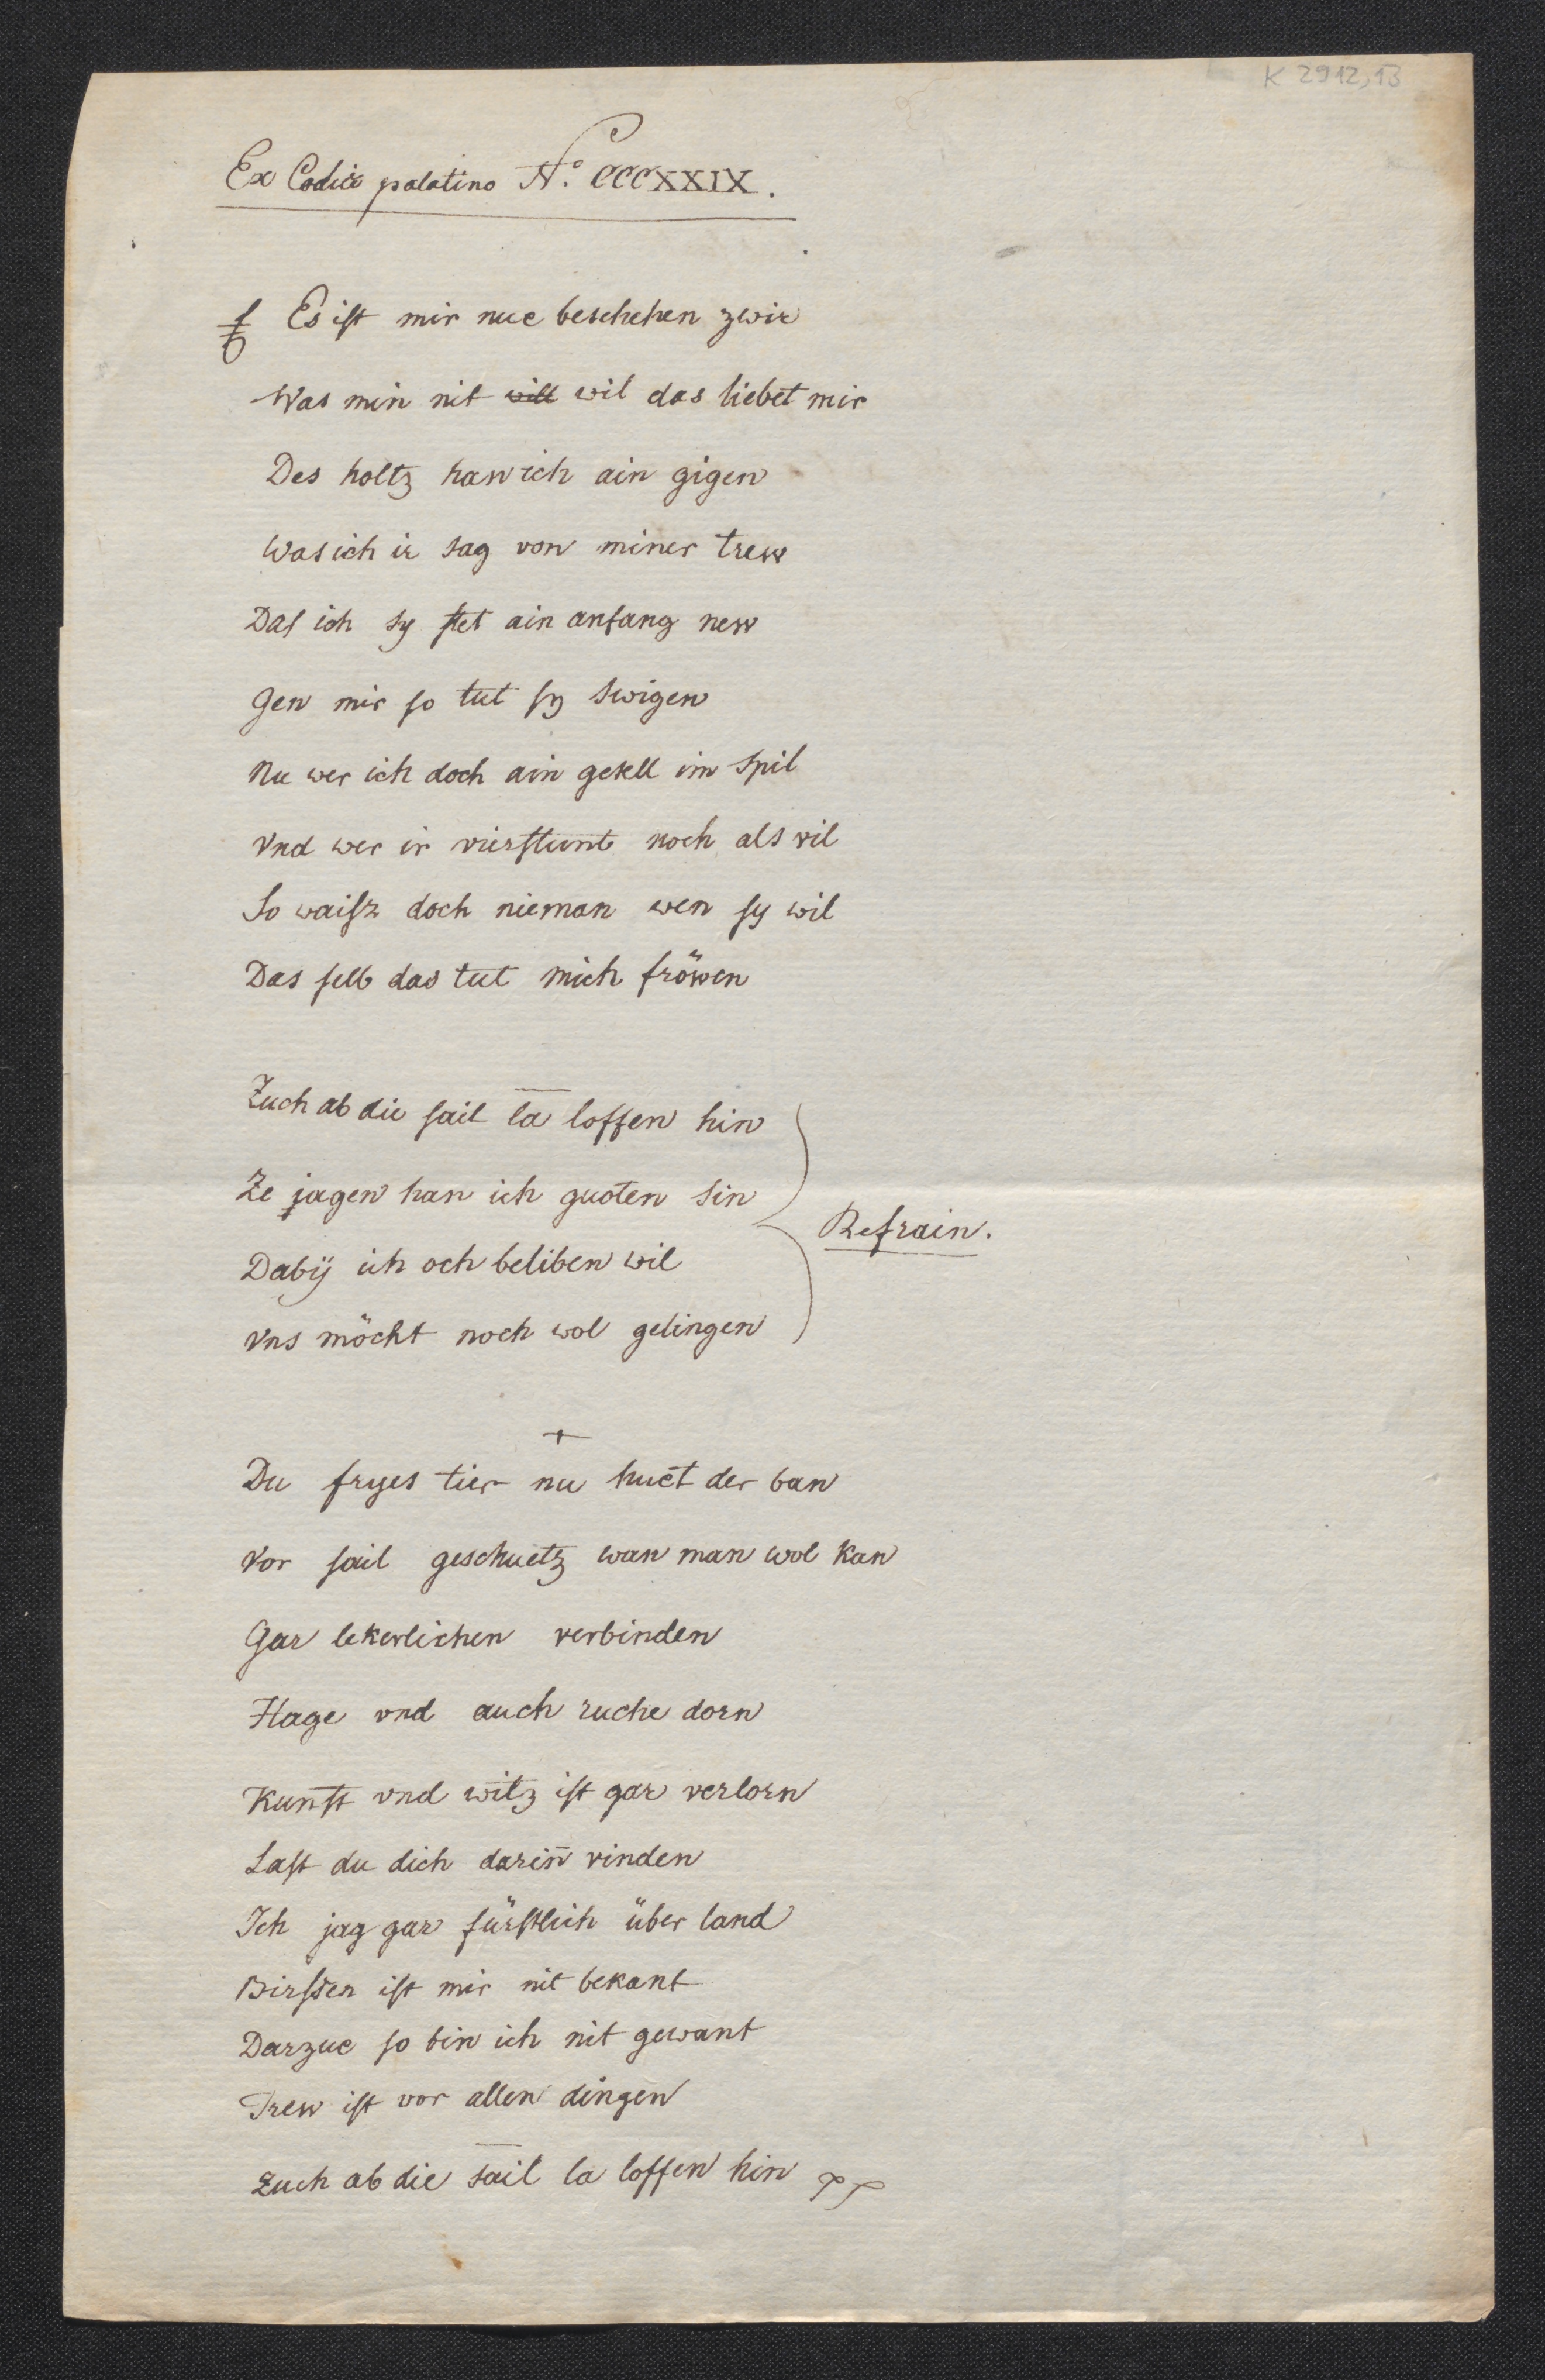 K 2912,13
Ex Codice palatino No. CCCXXIX.
Es ist mir nue beschehen zwir
Was min nit will wil das liebet mir
Des holtz han ich ain gigen
Was ich ir sag von miner trew
Das ich sy stet ain anfang new
Gen mir so tut sy swigen
Nu wer ich doch ain gesell im spil
Vnd wer ir vierstunt noch als vil
So waisz doch nieman wen sy wil
Das selb das tut mich fröwen
Zuch ab die sail la loffen hin
Ze jagen han ich guoten sin
Refrain.
Dabÿ ich och beliben wil
Vns möcht noch wol gelingen
+
Du fryes tier nu huet der ban
Vor sail geschuetz wan man wol kan
Gar lekerlichen verbinden
Hage vnd auch ruche dorn
Kunst vnd witz ist gar verlorn
Last du dich darin̄ vinden
Ich jag gar fürstlich über land
Birssen ist mir nit bekant
Darzue so bin ich nit gewant
Trew ist vor allen dingen
Zuch ab die sail la loffen hin